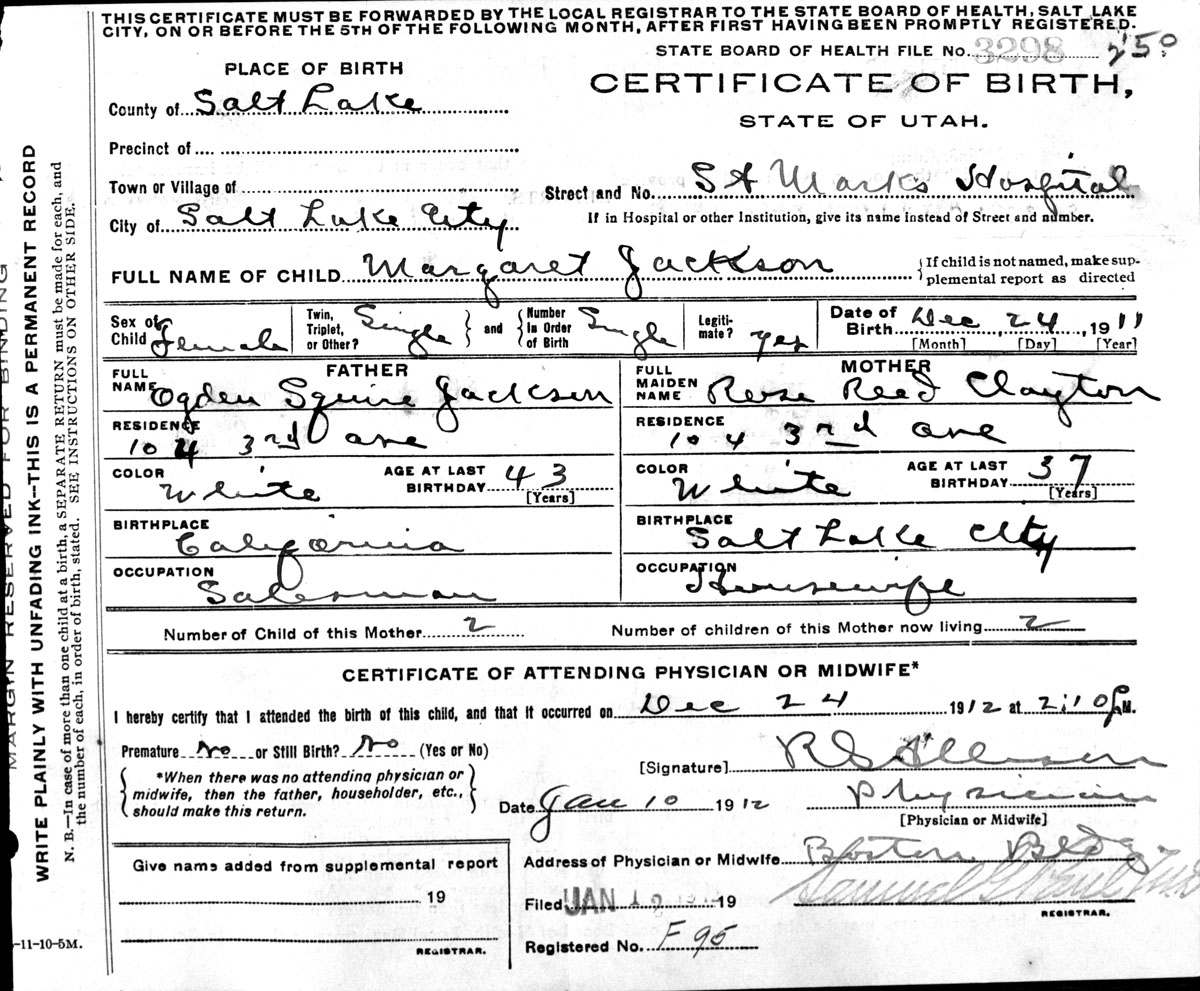 THIS CERTIFICATE MUST BE FORWARDED BY THE LOCAL REGISTRAR TO THE STATE BOARD OF HEALTH, SALT LAKE
CITY, ON OR BEFORE THE 5TH OF THE FOLLOWING MONTH, AFTER FIRST HAVING BEEN PROMPTLY REGISTERED.
STATE BOARD OF HEALTH FILE No. 3298 250
PLACE OF BIRTH
CERTIFICATE OF BIRTH,
STATE OF UTAH.
County of Salt Lake
Precinct of
Town or Village of
Street and No. St Marks Hospital
City of Salt Lake City
If in Hospital or other Institution, give its name instead of Street and number.
FULL NAME OF CHILD Margaret Jackson
If child is not named, make sup-
plemental report as directed
Sex of Child Female
Twin, Triplet, or Other? Single
and
Number In Order of Birth Single
Legiti-mate? yes
Date of Birth Dec 24, 1911
[Month] [Day] [Year]
FATHER
FULL NAME Ogden Squire Jackson
RESIDENCE 104 3rd ave
COLOR White
AGE AT LAST BIRTHDAY 43
[Years]
BIRTHPLACE California
OCCUPATION Salesman
MOTHER
FULL MAIDEN NAME Rose Reed Clayton
RESIDENCE 104 3rd ave
COLOR White
AGE AT LAST BIRTHDAY 37
[Years]
BIRTHPLACE Salt Lake City
OCCUPATION Housewife
Number of Child of this Mother 2
Number of children of this Mother now living 2
CERTIFICATE OF ATTENDING PHYSICIAN OR MIDWIFE*
I hereby certify that I attended the birth of this child, and that it occurred on Dec 24 1912 at 2:10 P M.
Premature No or Still Birth? No (Yes or No)
*When there was no attending physician or
midwife, then the father, householder, etc.,
should make this return.
[Signature] R S Allison
Date Jan 10 1912
Physician
[Physician or Midwife]
Give name added from supplemental report
19
REGISTRAR.
Address of Physician or Midwife Boston Bldg
Filed JAN 12 1912 19
Samuel G Paul M.D.
REGISTRAR.
Registered No. F 95
-11-10-5M.
MARGIN RESERVED FOR BINDING
WRITE PLAINLY WITH UNFADING INK--THIS IS A PERMANENT RECORD
N. B.—In case of more than one child at a birth, a SEPARATE RETURN must be made for each, and
the number of each, in order of birth, stated. SEE INSTRUCTIONS ON OTHER SIDE.